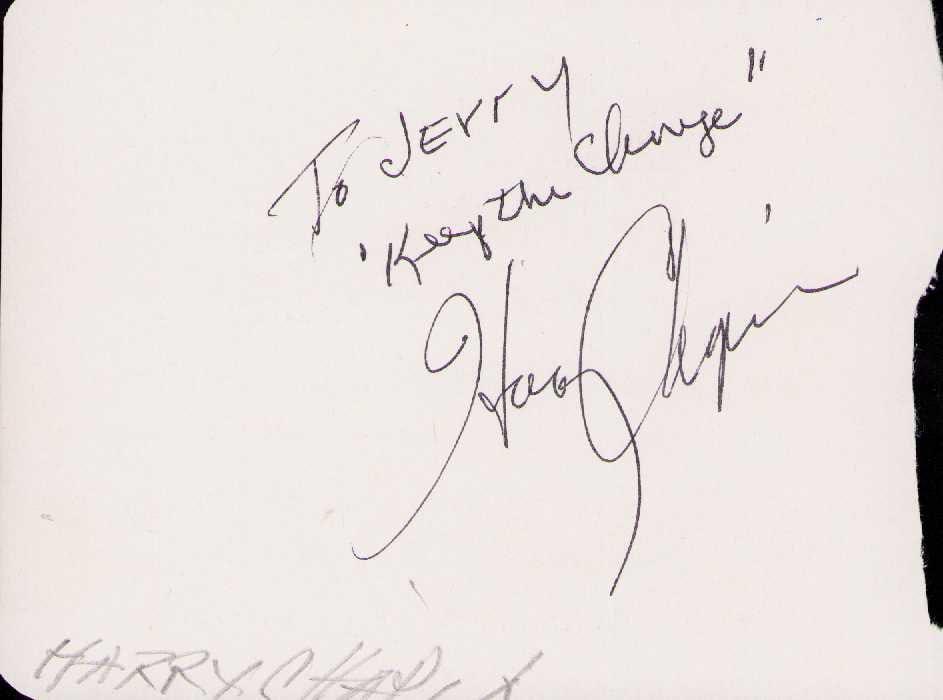 To JERRY
"Keep the Change"
Harry Chapin
HARRY CHAPIN